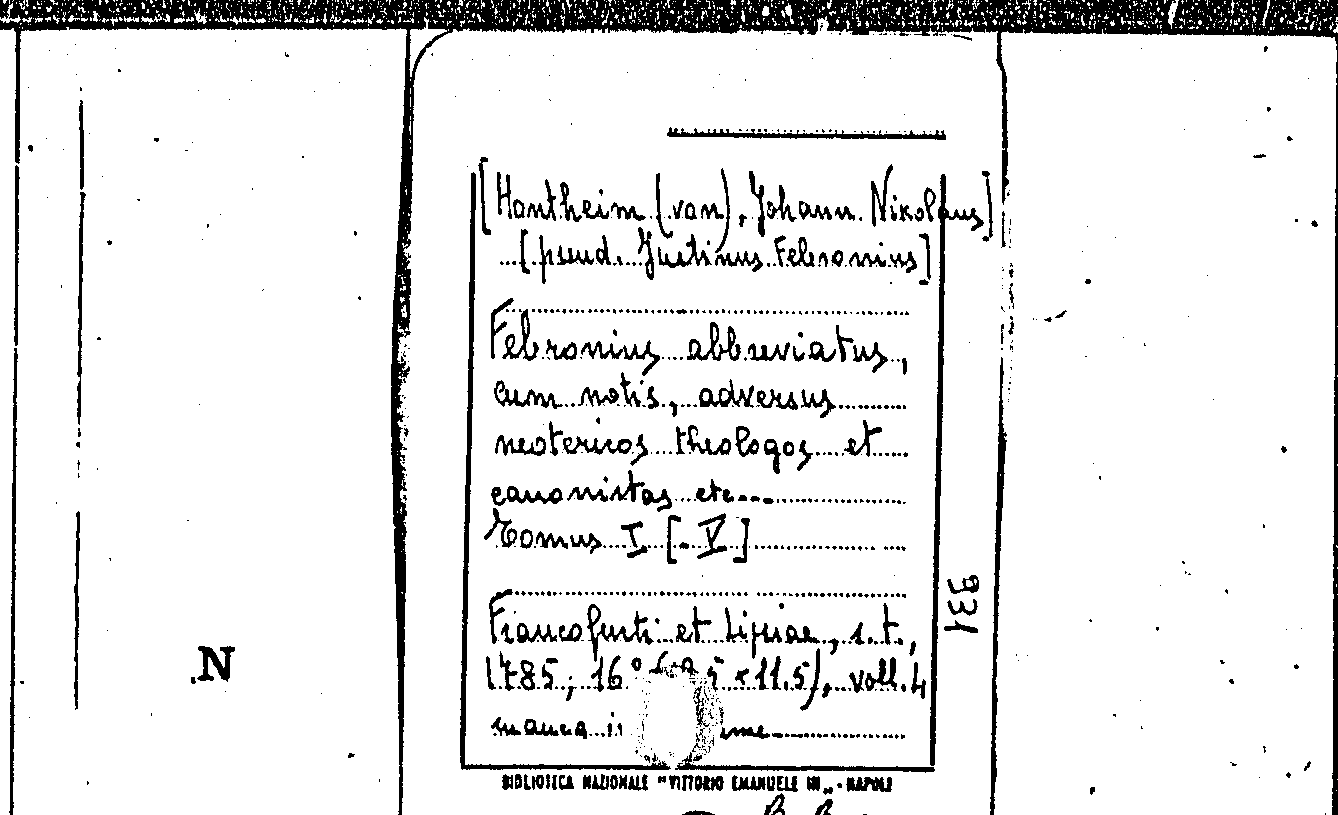 [Hontheim (von), Johann Nikolaus]
[pseud. Justinus Febronius]
Febronius abbreviatus,
cum notis, adversus
neotericos theologos et
canonistas etc...
Tomus I [-V]
Francofurti et Lipsiae, s.t.,
1785; 16° 5 x 11.5), voll. 4
manca
331
N
BIBLIOTECA NAZIONALE "VITTORIO EMANUELE III" - NAPOLI